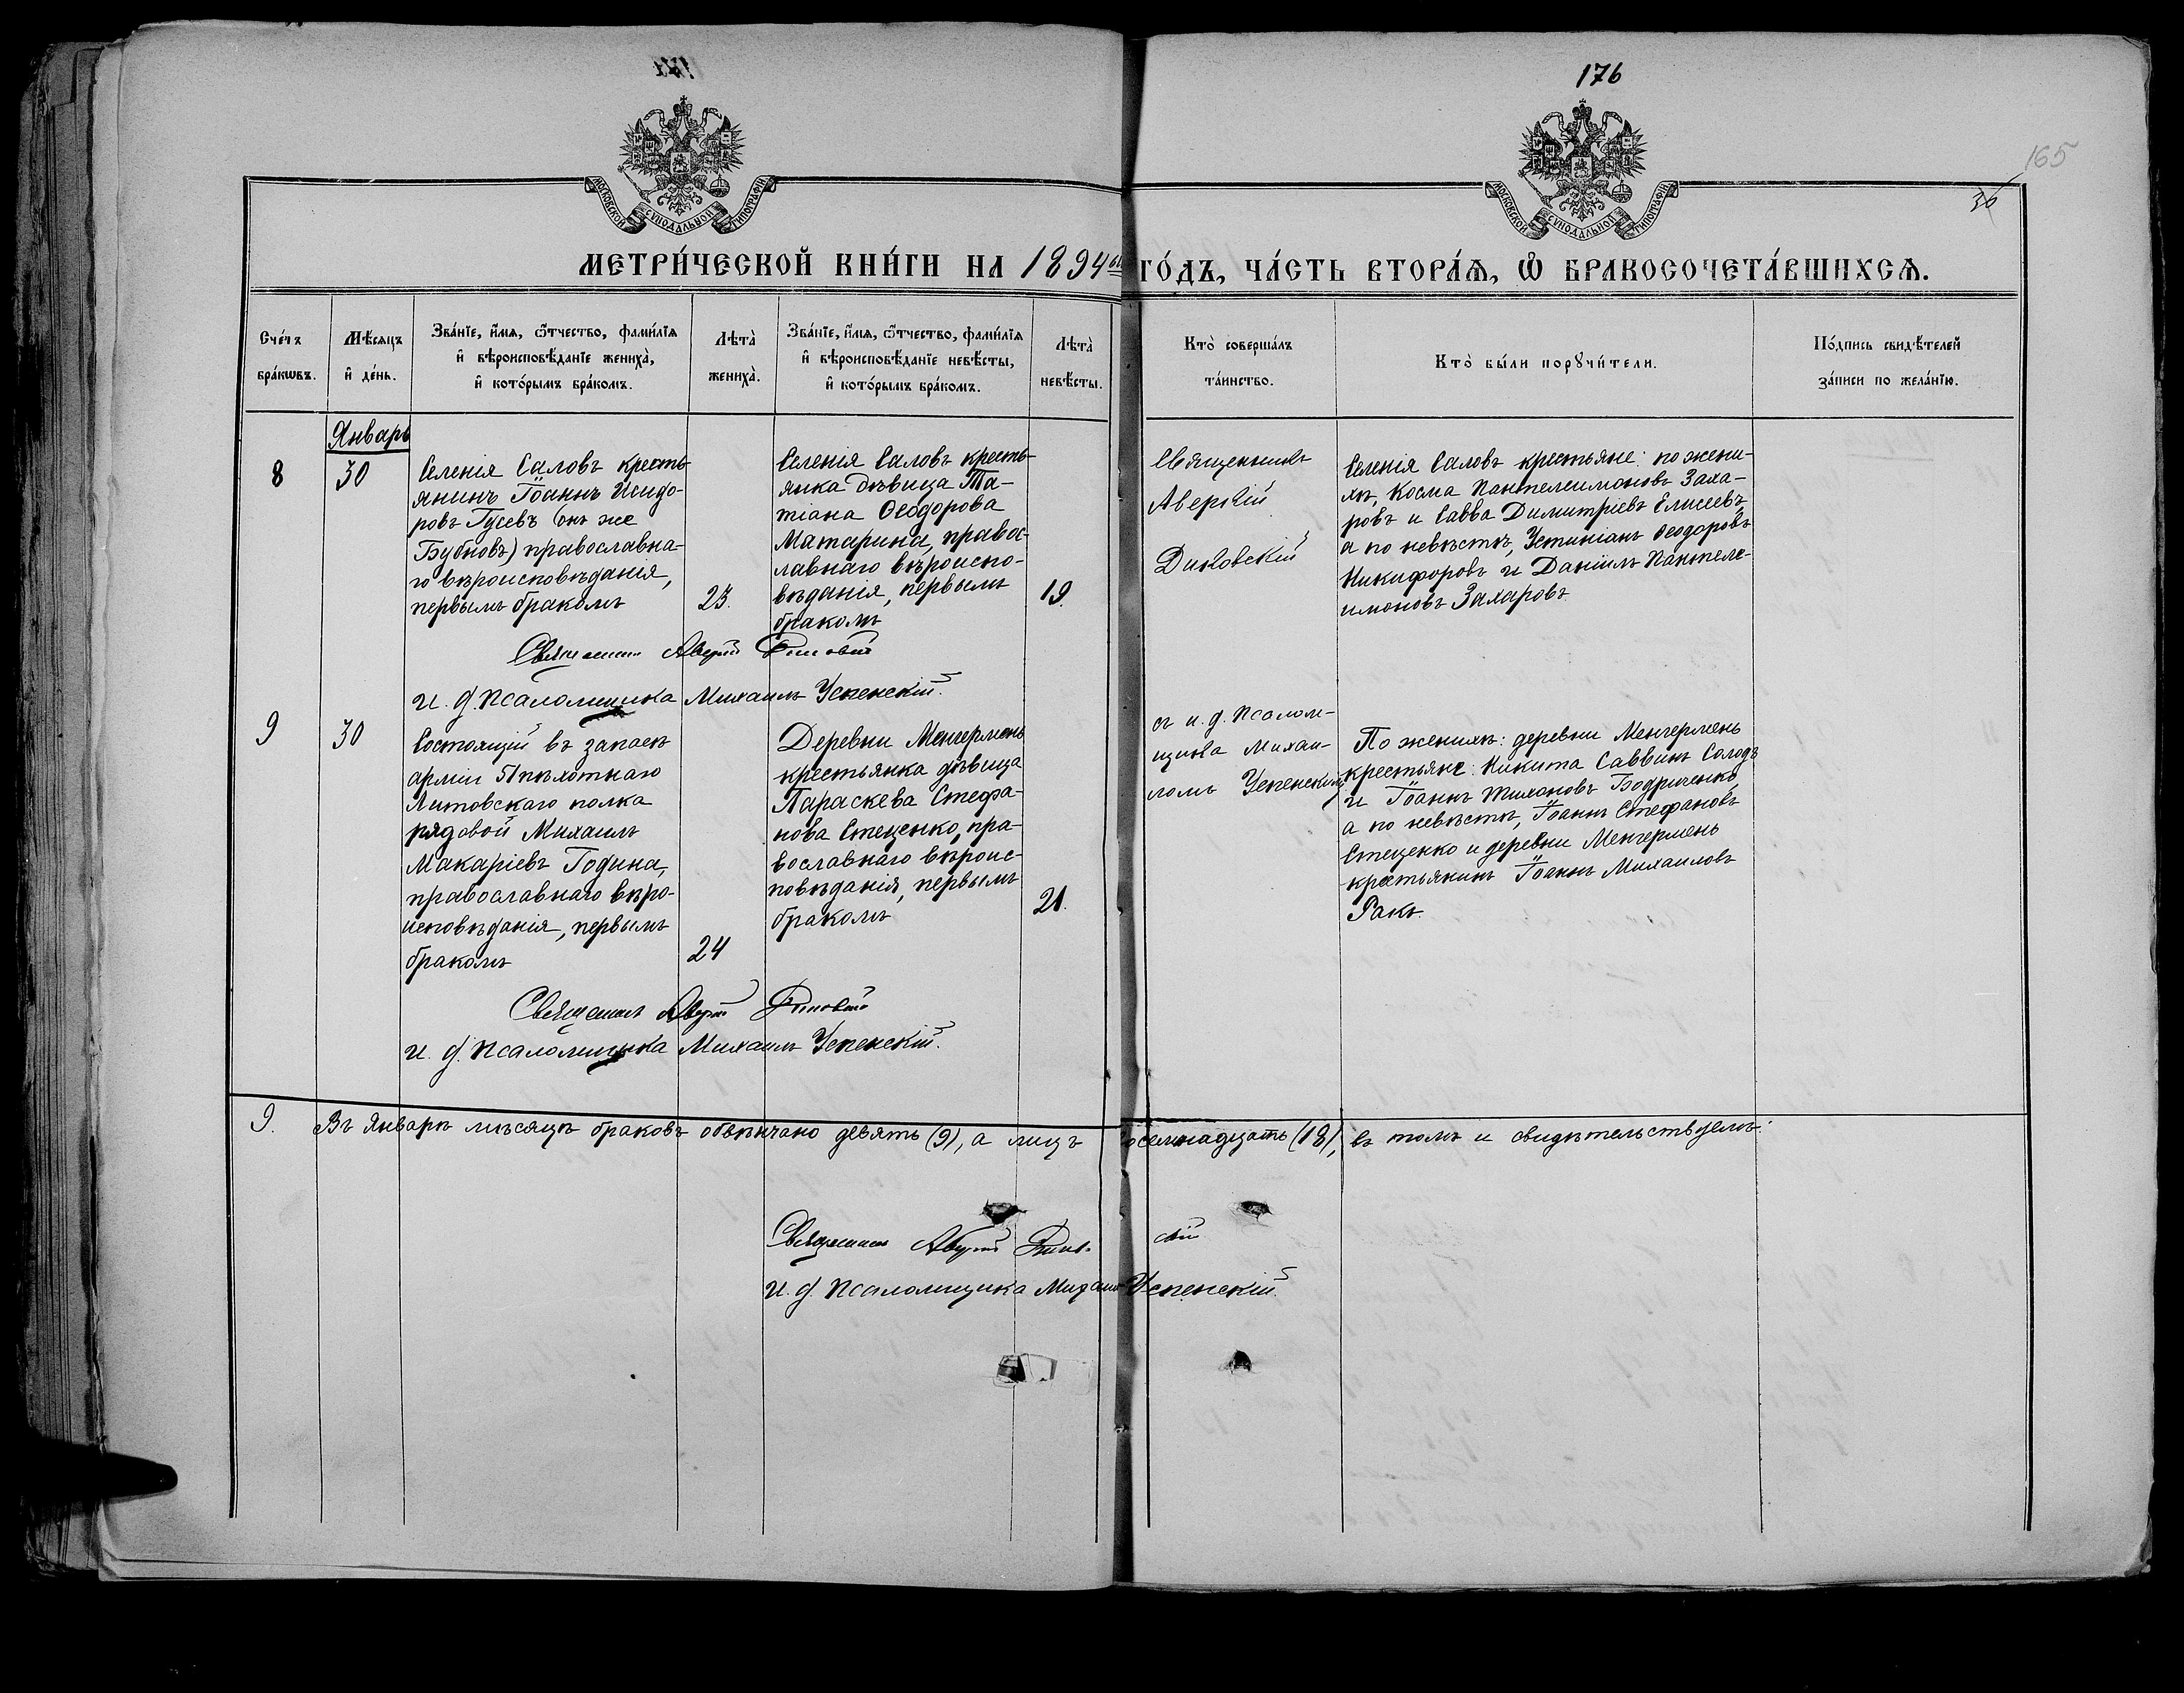 176
165
36
МОСКОВСКОЙ СѴНОДАЛЬНОЙ ТИПОГРАФІИ
МОСКОВСКОЙ СѴНОДАЛЬНОЙ ТИПОГРАФІИ
МЕТРИ́ЧЕСКОЙ КНИ́ГИ НА 1894ый ГО́ДЪ, ЧА́СТЬ ВТОРА́Ѧ, Ѽ БРАКОСОЧЕТА́ВШИХСѦ.
Сче́тъ
бра́кѡвъ.
Мѣ́сяцъ
и҆ де́нь.
Зва́нїе, и҆́мя, ѻ҆́тчество, фами́лїя
и҆ вѣроисповѣ́данїе жениха̀,
и҆ кото́рымъ бра́комъ.
Лѣта̀
жениха̀.
Зва́нїе, и҆́мя, ѻ҆́тчество, фами́лїя
и҆ вѣроисповѣ́данїе невѣ́сты,
и҆ кото́рымъ бра́комъ.
Лѣта̀
невѣ́сты.
Кто̀ соверша́лъ
та́инство.
Кто̀ бы́ли порꙋчи́тели.
По́дпись свидѣ́телей
за́писи по жела́нїю.
Январь
8
30
Селенія Саловъ кресть-
янинъ Іоаннъ Исидо-
ровъ Гусевъ (онъ же
Бубновъ) православна-
го вѣроисповѣданія,
первымъ бракомъ
23.
Селенія Саловъ кресть-
янка дѣвица Та-
тіана Ѳеодорова
Матарина, правос-
лавнаго вѣроиспо-
вѣданія, первымъ
бракомъ
19.
Священникъ
Аверкій
Диковскій
Селенія Саловъ крестьяне: по жени-
хѣ, Косма Пантелеимоновъ Заха-
ровъ и Савва Димитріевъ Елисеевъ,
а по невѣстѣ, Устиніанъ Ѳеодоровъ
Никифоровъ и Даніилъ Пантеле-
имоновъ Захаровъ.
Священникъ Аверкій
и. д. псаломщика Михаилъ Успенскій.
9
30
Состоящій въ запасѣ
арміи 51 пѣхотнаго
Литовскаго полка
рядовой Михаилъ
Макаріевъ Година,
православнаго вѣро-
исповѣданія, первымъ
бракомъ
24
Деревни Менгермень
крестьянка дѣвица
Параскева Стефа-
нова Стеценко, пра-
вославнаго вѣроис-
повѣданія, первымъ
бракомъ
21.
съ и. д. псалом-
щика Михаи-
ломъ Успенскимъ
По женихѣ: деревни Менгермень
крестьяне: Никита Саввинъ Солодъ
и Іоаннъ Тихоновъ Бодриченко,
а по невѣстѣ, Іоаннъ Стефановъ
Стеценко и деревни Менгермень
крестьянинъ Іоаннъ Михаиловъ
Ракъ.
Священникъ Аверкій
и. д. псаломщика Михаилъ Успенскій.
9. Въ январѣ мѣсяцѣ браковъ обвѣнчано девять (9), а лицъ восемнадцать (18), въ томъ и свидѣтельствуемъ:
Священникъ Аверкій
и. д. псаломщика Михаилъ Успенскій.